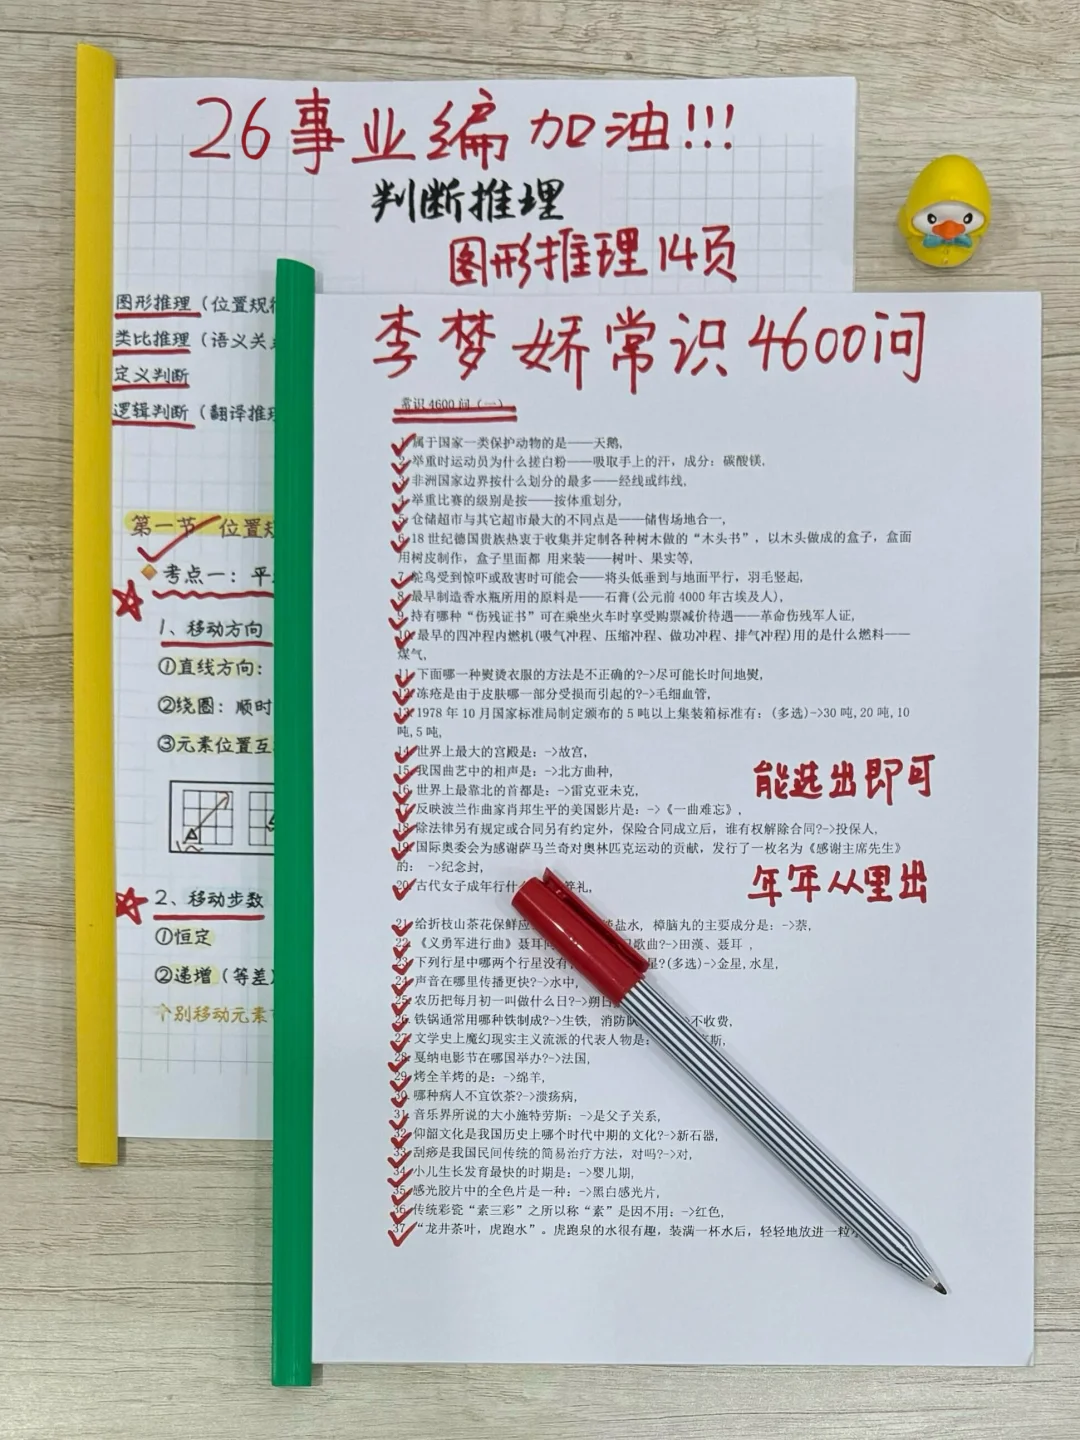 26事业编加油!!!
判断推理
图形推理14页
图形推理（位置规
类比推理（语义关
定义判断
逻辑判断（翻译推理
第一节 位置规
考点一：平
1、移动方向
①直线方向：
②绕圈：顺时
③元素位置互
2、移动步数
①恒定
②递增（等差
个别移动元素
李梦娇常识4600问
常识4600问（一）
1.属于国家一类保护动物的是——天鹅,
2.举重时运动员为什么搓白粉——吸取手上的汗，成分：碳酸镁,
3.非洲国家边界按什么划分的最多——经线或纬线,
4.举重比赛的级别是按——按体重划分,
5.仓储超市与其它超市最大的不同点是——储售场地合一,
6.18世纪德国贵族热衷于收集并定制各种树木做的“木头书”，以木头做成的盒子，盒面
用树皮制作，盒子里面都 用来装——树叶、果实等,
7.鸵鸟受到惊吓或敌害时可能会——将头低垂到与地面平行，羽毛竖起,
8.最早制造香水瓶所用的原料是——石膏(公元前4000年古埃及人),
9.持有哪种“伤残证书”可在乘坐火车时享受购票减价待遇——革命伤残军人证,
10.最早的四冲程内燃机(吸气冲程、压缩冲程、做功冲程、排气冲程)用的是什么燃料——
煤气,
11.下面哪一种熨烫衣服的方法是不正确的?->尽可能长时间地熨,
12.冻疮是由于皮肤哪一部分受损而引起的?->毛细血管,
13.1978年10月国家标准局制定颁布的5吨以上集装箱标准有：(多选)->30吨,20吨,10
吨,5吨,
14.世界上最大的宫殿是：->故宫,
15.我国曲艺中的相声是：->北方曲种,
16.世界上最靠北的首都是：->雷克亚未克,
17.反映波兰作曲家肖邦生平的美国影片是：->《一曲难忘》,
18.除法律另有规定或合同另有约定外，保险合同成立后，谁有权解除合同?->投保人,
19.国际奥委会为感谢萨马兰奇对奥林匹克运动的贡献，发行了一枚名为《感谢主席先生》
的： ->纪念封,
20.古代女子成年行什 笄礼,
能选出即可
年年从里出
21.给折枝山茶花保鲜应 盐水，樟脑丸的主要成分是：->萘,
22.《义勇军进行曲》聂耳 歌曲?->田漢、聂耳 ,
23.下列行星中哪两个行星没有 星?(多选)->金星,水星,
24.声音在哪里传播更快?->水中,
25.农历把每月初一叫做什么日?->朔日
26.铁锅通常用哪种铁制成?->生铁，消防队 >不收费,
27.文学史上魔幻现实主义流派的代表人物是： 斯,
28.戛纳电影节在哪国举办?->法国,
29.烤全羊烤的是：->绵羊,
30.哪种病人不宜饮茶?->溃疡病,
31.音乐界所说的大小施特劳斯：->是父子关系,
32.仰韶文化是我国历史上哪个时代中期的文化?->新石器,
33.刮痧是我国民间传统的简易治疗方法，对吗?->对,
34.小儿生长发育最快的时期是：->婴儿期,
35.感光胶片中的全色片是一种：->黑白感光片,
36.传统彩瓷“素三彩”之所以称“素”是因不用：->红色,
37.“龙井茶叶，虎跑水”。虎跑泉的水很有趣，装满一杯水后，轻轻地放进一粒